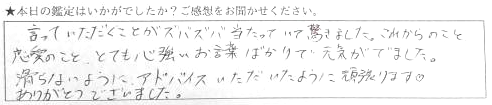 ★本日の鑑定はいかがでしたか?ご感想をお聞かせください。
言っていただくことがズバズバ当たっていて驚きました。これからのこと
恋愛のこと、とても心強いお言葉ばかりで元気がでました。
滑らないように、アドバイスいただいたように頑張ります♡
ありがとうございました。